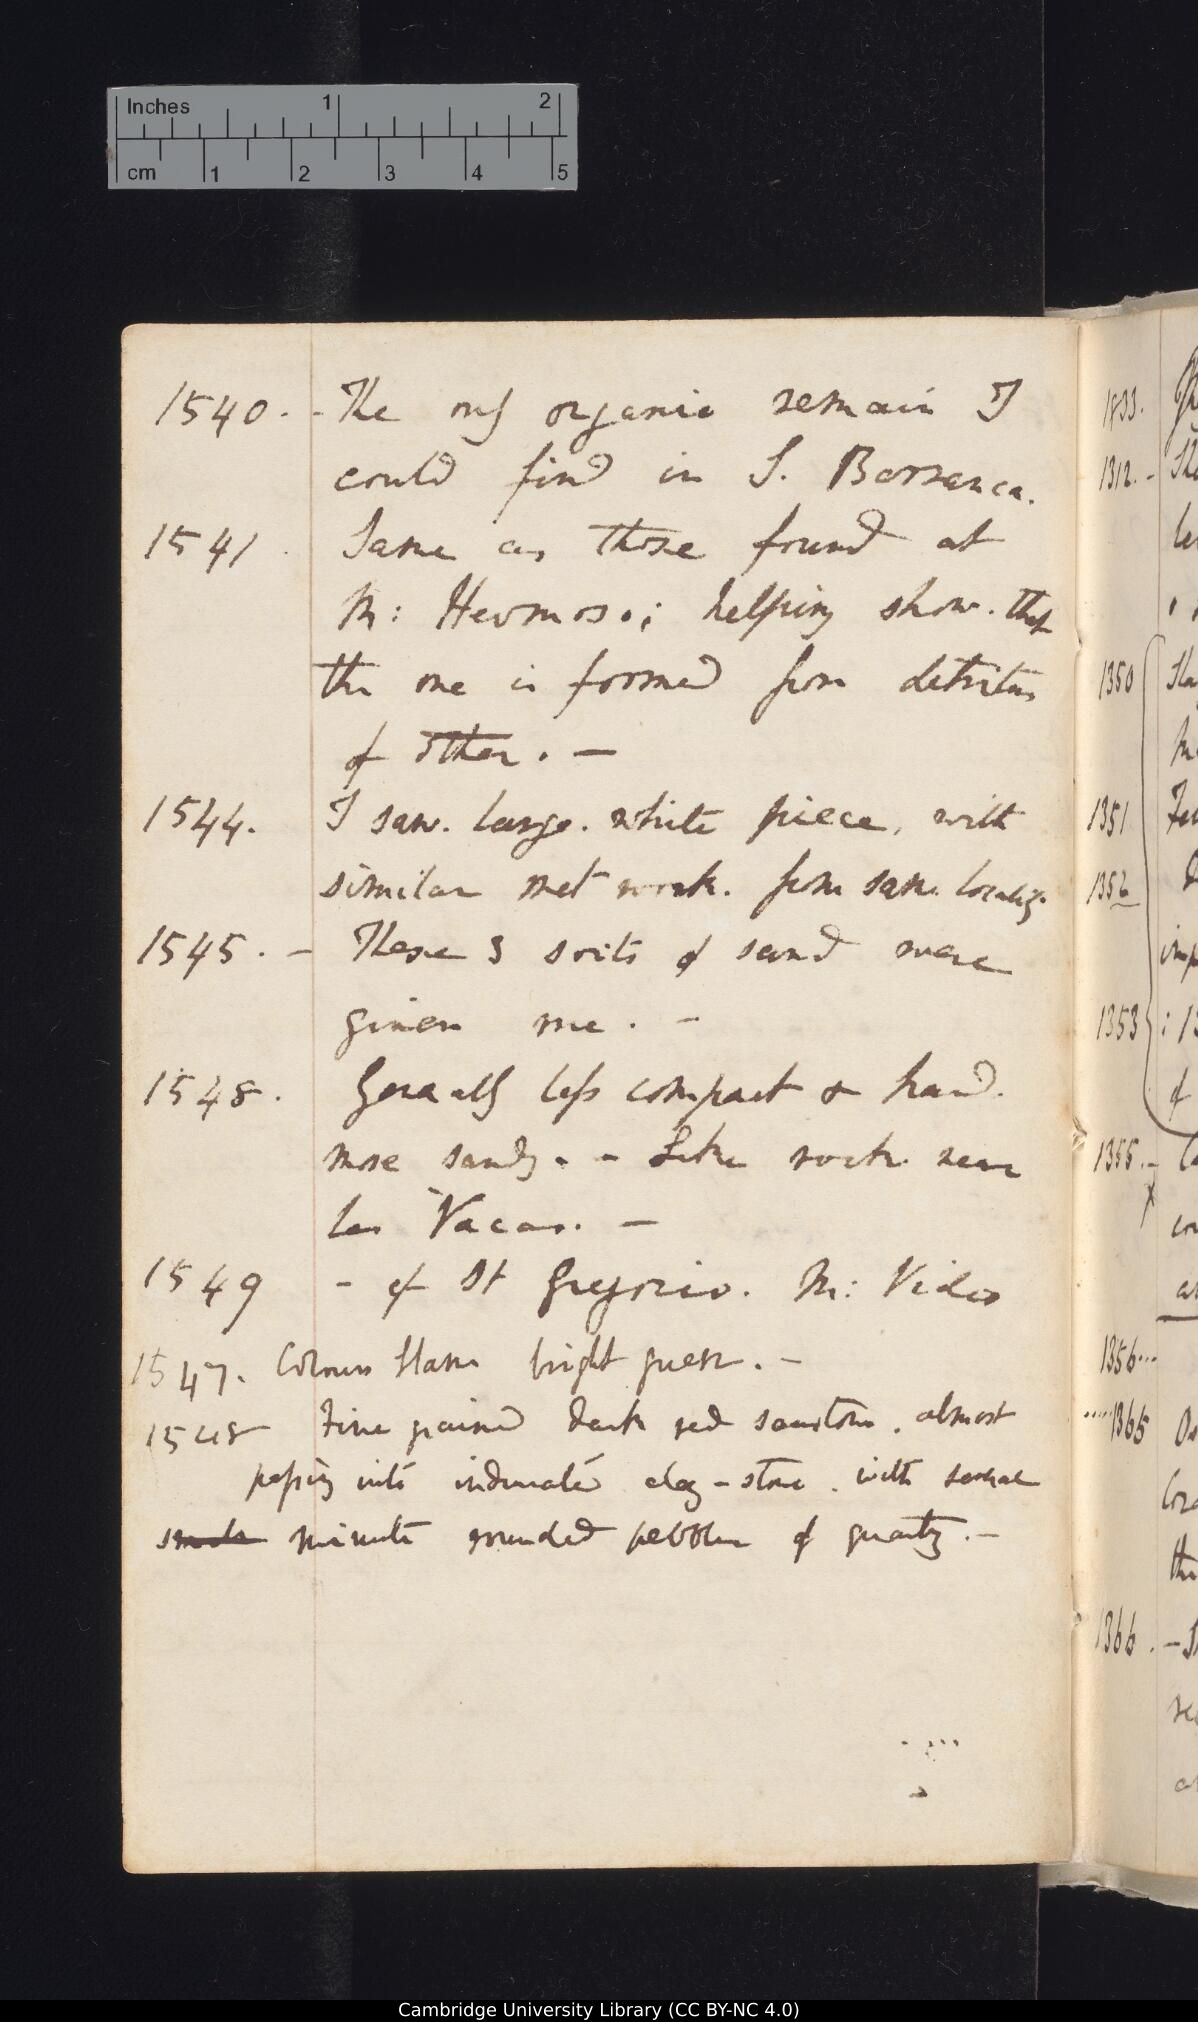 Inches 1 2
cm 1 2 3 4 5
1540. - The only organic remain I
could find in S. Barranca.
1541. Same as those found at
M: Hermoso; helping show that
the one is formed from detritus
of other. —
1544. I saw large white piece, with
similar net work from same locality.
1545. - These 3 sorts of sand were
given me. -
1548. Generally less compact & hard.
more sandy. - Like rock near
las Vacas. —
1549 - of St Gregorio. M: Video
1547. Colour stain bright green. -
1548 Fine grained dark red sandstone, almost
passing into indurated clay-stone, with several
minute rounded pebbles of quartz. -
1833.
1312. -
1350
1351
1352
1353
of
1355. -
1356...
.....1365
1366. -
Cambridge University Library (CC BY-NC 4.0)